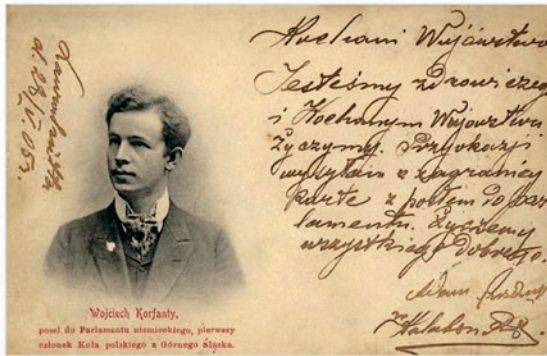 Kochani Wujowstwo
Jesteśmy zdrowi czego
i Kochanym Wujowstwu
życzymy. Przy okazji
wysyłam z zagranicy
kartę z posłem do par
lamentu. Życzemy
wszystkiego dobrego.
Adam
d. 28/V. 05 r.
Wojciech Korfanty,
poseł do Parlamentu niemieckiego, pierwszy
członek Koła polskiego z Górnego Śląska.